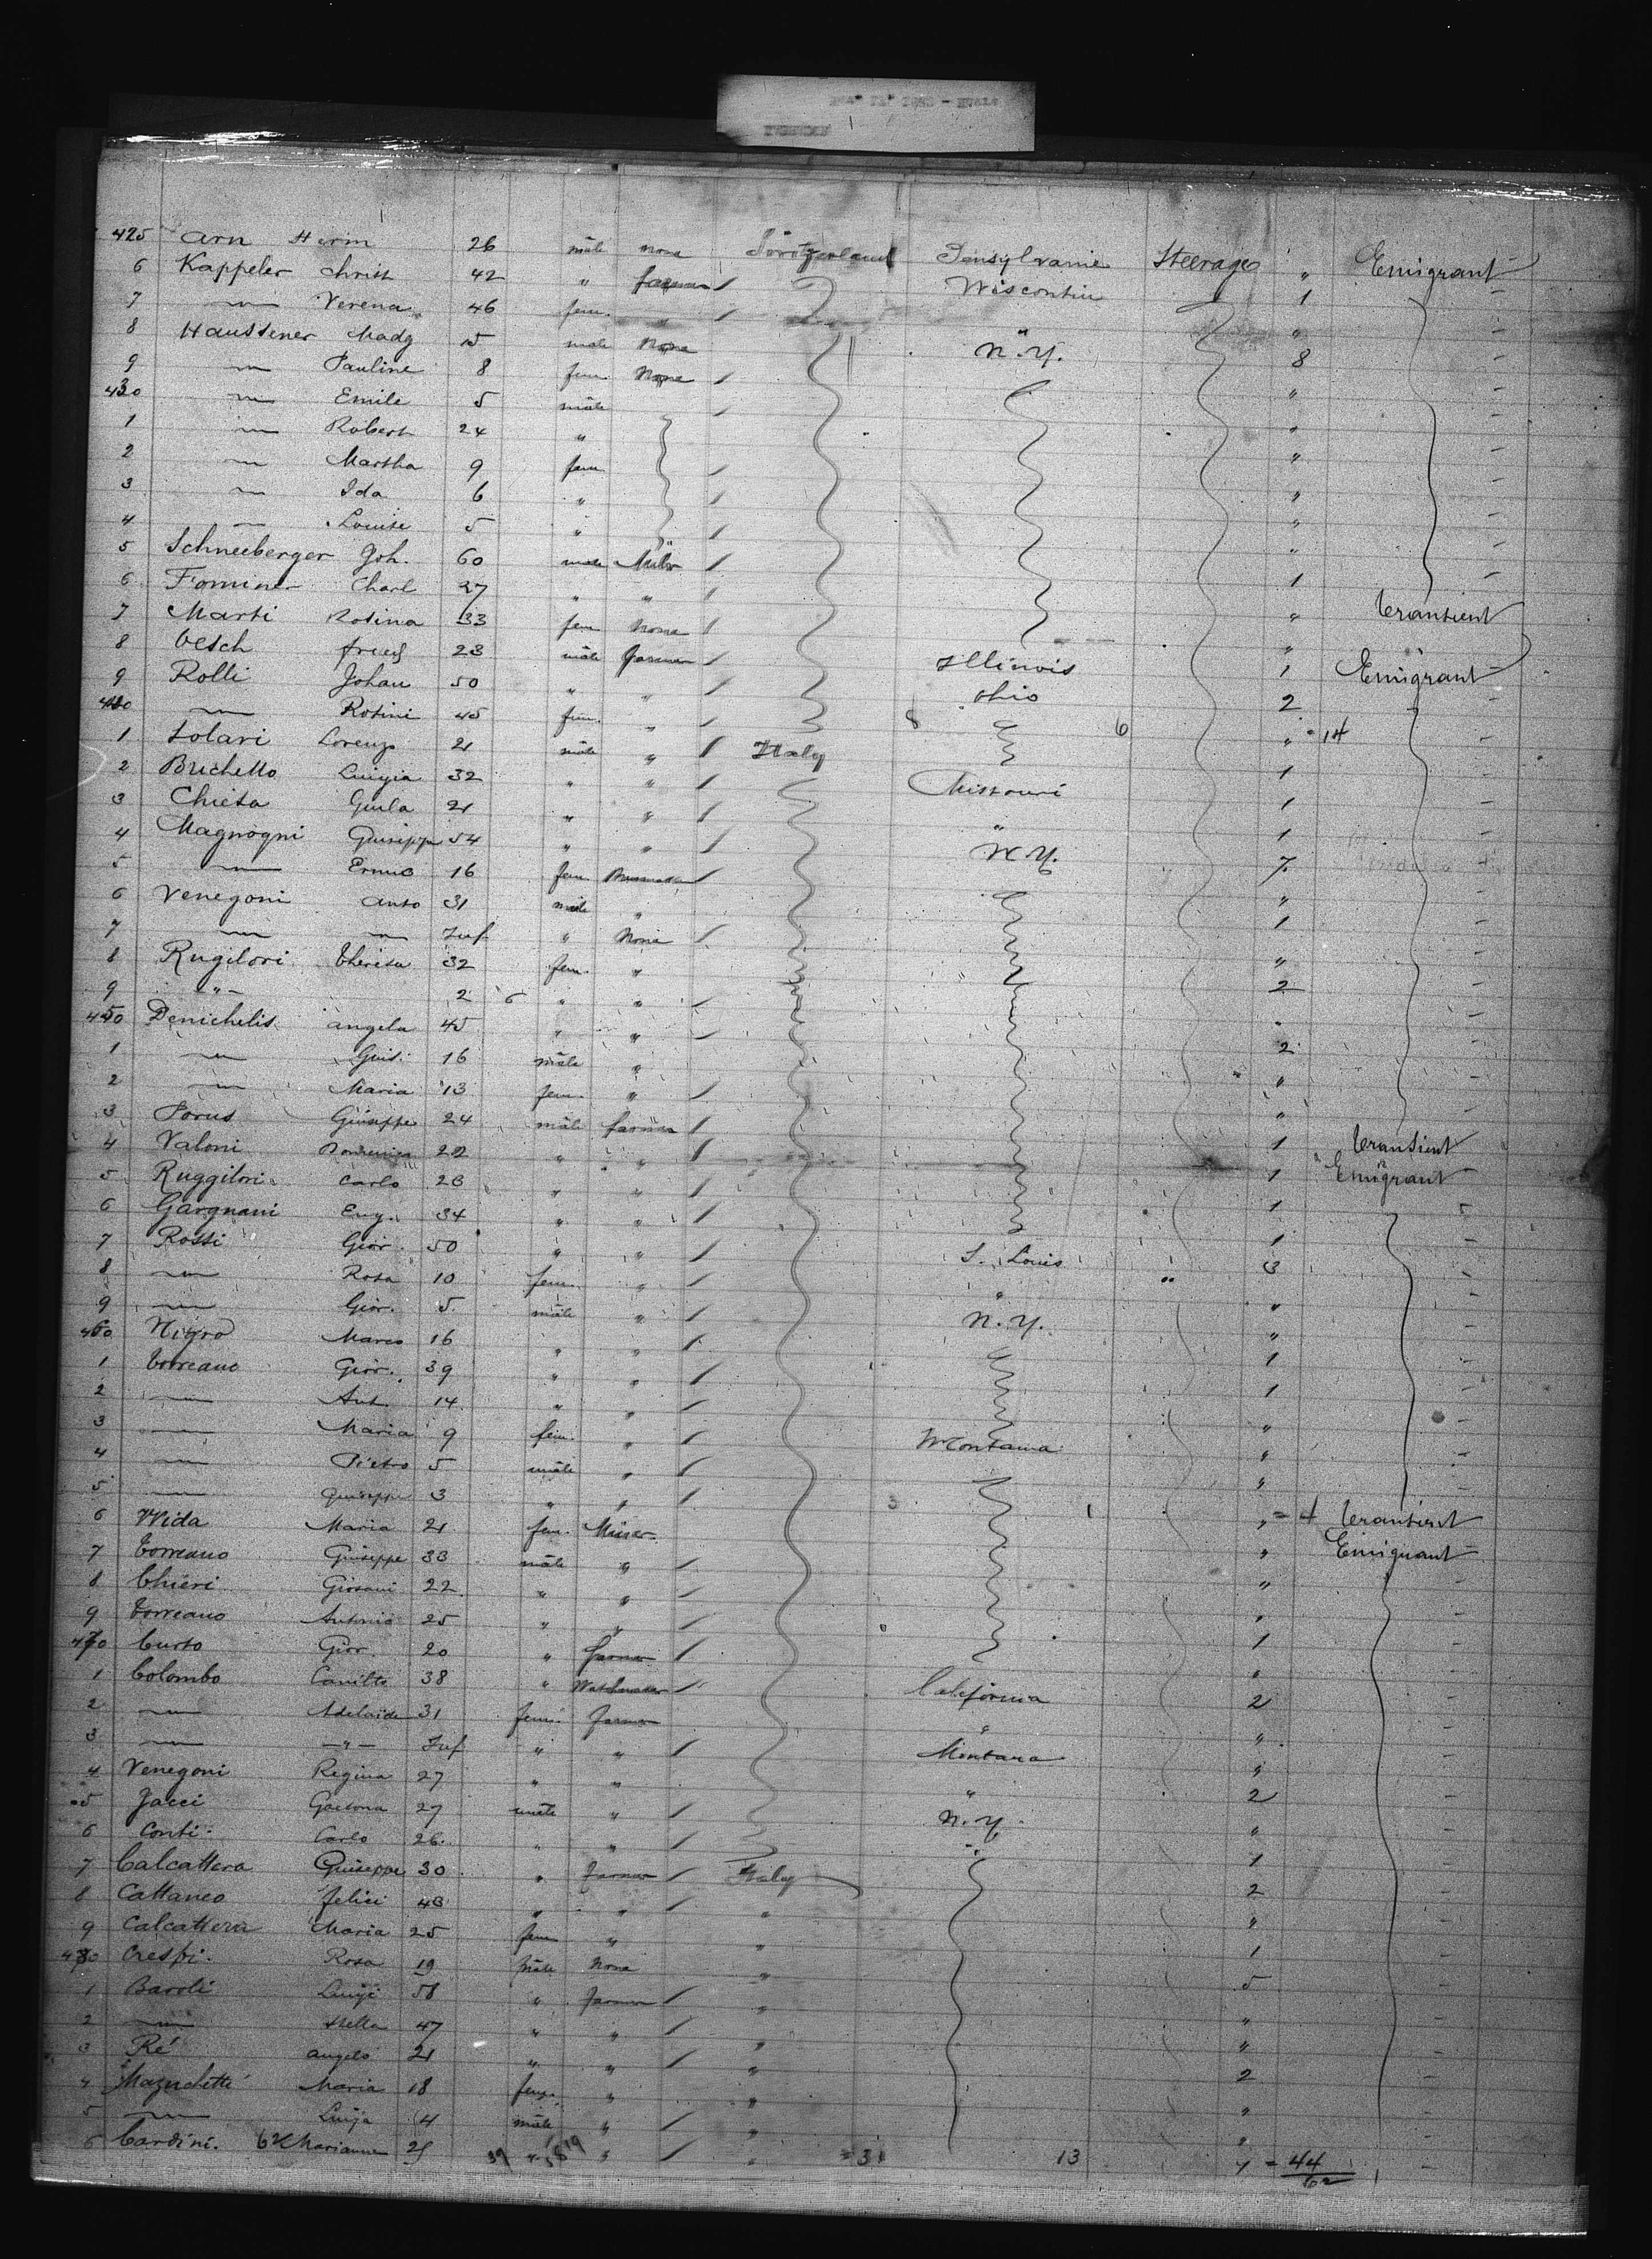 425 Arn Herm 26 male none Switzerland Pensylvanie Steerage " Emigrant -
6 Kappeler Christ 42 " farmer / Wisconsin 1 -
7 — Verena 46 fem. " / " -
8 Haussener Madg male None N.Y. 8 -
9 — Pauline 8 fem. None / " -
430 — Emile 5 male / " -
1 — Robert 24 " " -
2 — Martha 9 fem. / " -
3 — Ida 6 " / " -
4 — Louise 5 " / " -
5 Schneeberger Joh. 60 male / 1 -
6 Charl 27 " " / " transient
7 Marti Rosina 33 fem None / "
8 Oesch 23 male farmer / Illinois 1 Emigrant -
9 Rolli Johan 50 " " / Ohio 2 -
440 — Rosini 45 fem. " / 8 6 " = 14 -
1 Solari Lorenzo 21 male " / Italy 1 -
2 Brichetto Luigia 32 " " / Missouri 1 -
3 Chiesa Giula 21 " " / 1 -
4 Magnogni Guiseppe 54 " " / N.Y. 7 -
5 — 16 fem / " -
6 Venegoni Anto 31 male " 1 -
7 — — Inf " None / " -
8 Rugilori Theresa 32 fem. " 2 -
9 - " - 2 6 " " / " -
450 Denichelis angela 45 " " / 2 -
1 — Guis. 16 male " " -
2 — Maria 13 fem. " / " -
3 Porus Giuseppe 24 male farmer / 1 transient
4 Valoni 22 " " / 1 Emigrant -
5 Ruggilori Carlo 23 " " / 1 -
6 Gargnani Eug. 34 " " / 1 -
7 Rossi Giov. 50 " " / S. Louis 3 -
8 — Rosa 10 fem. " / " " -
9 — Giov. 5 male " / N.Y. " -
460 Nigro Marco 16 " " / 1 -
1 Torreano Giov. 39 " " / 1 -
2 — Ant. 14 " " " -
3 — Maria 9 fem. " / Montana " -
4 — Pietro 5 male " / " -
5 — Guiseppe 3 " " / 3 1 " = 4 transient
6 Wida Maria 21 fem. Miner " Emigrant
7 Torreano Giuseppe 33 male " / " -
8 Chieri Giovani 22 " " / " -
9 Torreano Antonio 25 " " / 1 -
470 Curto Giov. 20 " farmer / " -
1 Colombo Camillo 38 " Watchmaker / California 2 -
2 — Adelaide 31 fem. farmer " " -
3 — - " - Inf " " / Montana " -
4 Venegoni Regina 27 " " " 2 -
5 Jacci 27 male " / N.Y. " -
6 Conti Carlo 26 " " / " 1 -
7 Calcattera Guiseppe 30 " farmer / Italy 2 -
8 Cattaneo Felici 43 " " / " " -
9 Calcattera Maria 25 fem " " 1 -
480 Crespi Rosa 19 male None " 5 -
1 Baroli Luigi 58 " farmer / " " -
2 — Stella 47 " " / " " -
3 Ré angelo 21 " " / " 2 -
4 Maria 18 fem. " " " -
5 — Luija male " / " " -
6 Cardini. Marianne 39 " / " = 31 13 " = 44 -
62